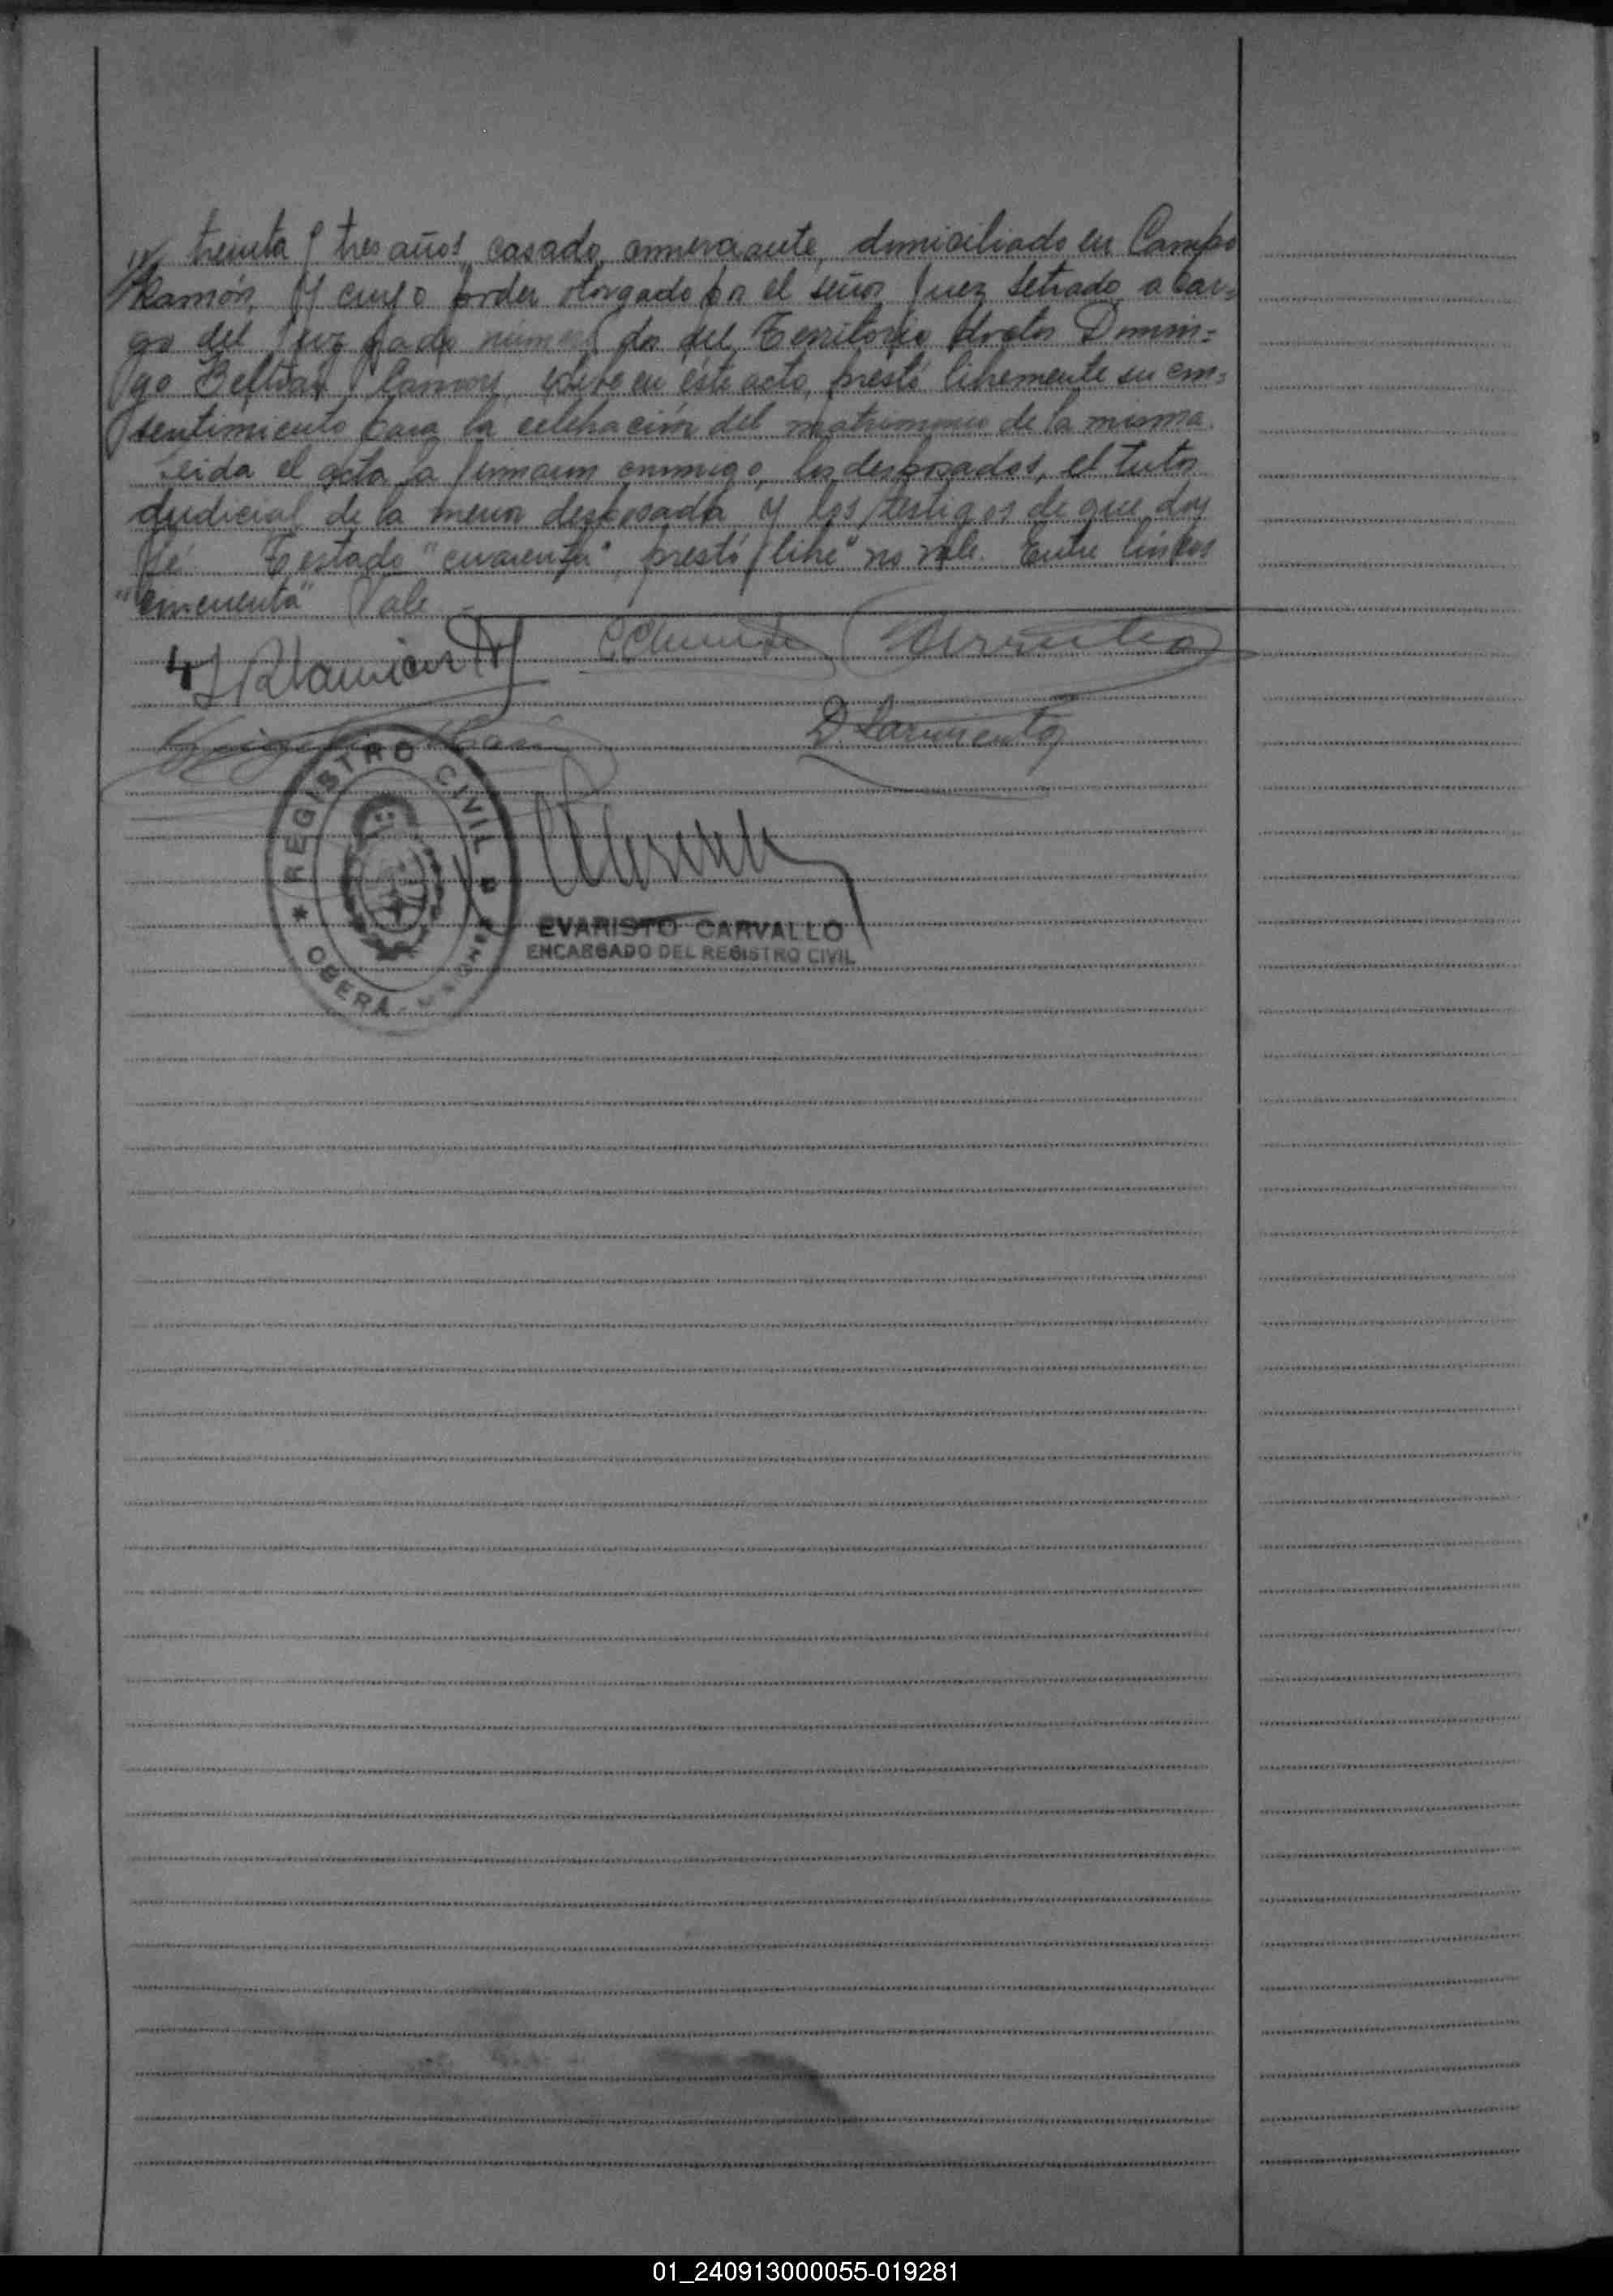 treinta y tres años, casado, comerciante, domiciliado en Campo
Ramón, y cuyo poder otorgado por el señor Juez Letrado a car=
go del Juzgado número dos del Territorio doctor Domin=
go Beltrán exhibe en éste acto, prestó libremente su con=
sentimiento para la celebración del matrimonio de la misma.
Leida el acta la firmaron conmigo, los desposados, el tutor
judicial de la menor desposada y los testigos de que doy
fé. Testado "cuarenta", prestó libre" no vale. Entre lineas
"cincuenta" Vale.-
D. Sarmiento
REGISTRO CIVIL
OBERÁ - MISIONES
EVARISTO CARVALLO
ENCARGADO DEL REGISTRO CIVIL
01_240913000055-019281